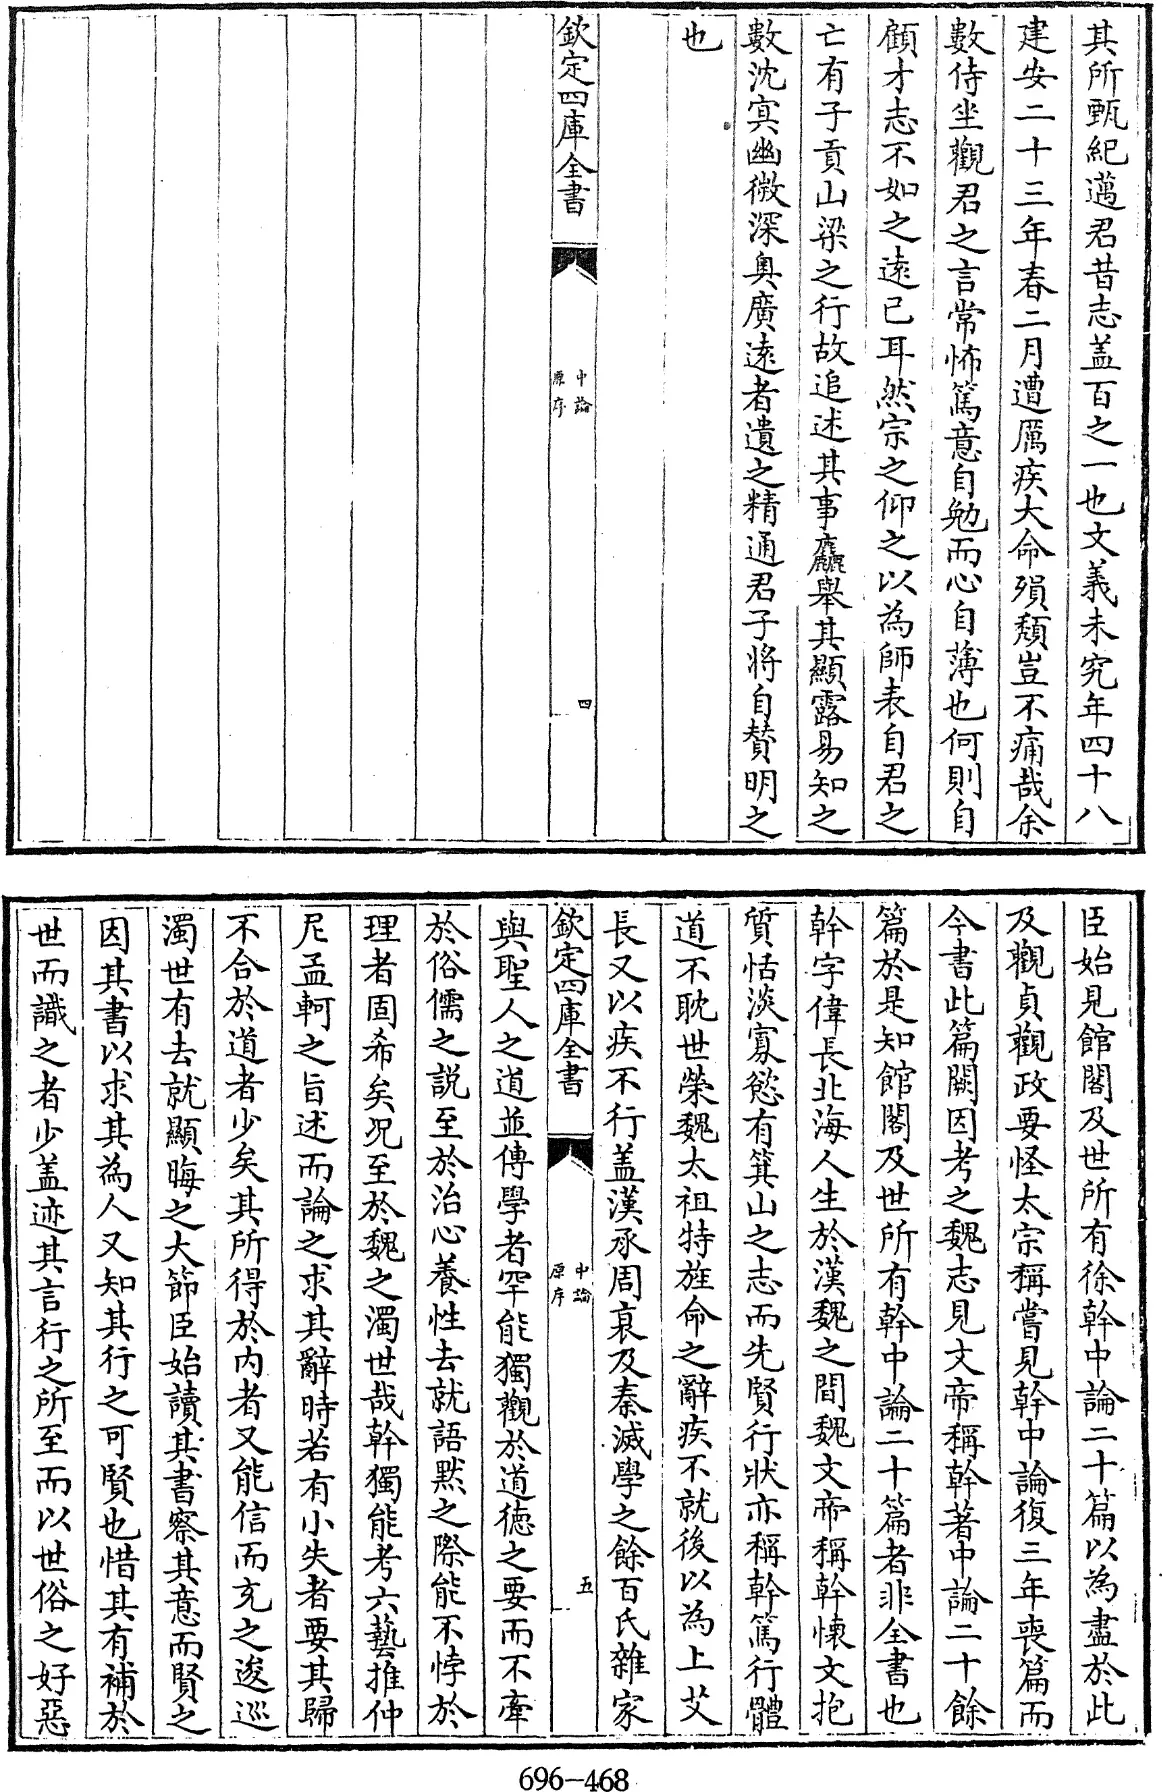 其所甄紀邁君昔志盖百之一也文義未究年四十八
建安二十三年春二月遭厲疾大命殞頽豈不痛哉余
數侍坐觀君之言常怖篤意自勉而心自薄也何則自
顧才志不如之遠已耳然宗之仰之以為師表自君之
亡有子貢山梁之行故追述其事麤舉其顯露易知之
數沈寘幽微深奥廣遠者遺之精通君子將自賛明之
也
欽定四庫全書
中論
原序
四
臣始見館閣及世所有徐幹中論二十篇以為盡於此
及觀貞觀政要怪太宗稱嘗見幹中論復三年喪篇而
今書此篇闕因考之魏志見文帝稱幹著中論二十餘
篇於是知館閣及世所有幹中論二十篇者非全書也
幹字偉長北海人生於漢魏之間魏文帝稱幹懐文抱
質恬淡寡慾有箕山之志而先賢行狀亦稱幹篤行體
道不耽世榮魏太祖特旌命之辭疾不就後以為上艾
長又以疾不行盖漢承周衰及秦滅學之餘百氏雜家
欽定四庫全書
中論
原序
五
與聖人之道並傳學者罕能獨觀於道徳之要而不牽
於俗儒之説至於治心養性去就語黙之際能不悖於
理者固希矣况至於魏之濁世哉幹獨能考六藝推仲
尼孟軻之旨述而論之求其辭時若有小失者要其歸
不合於道者少矣其所得於内者又能信而充之逡巡
濁世有去就顯晦之大節臣始讀其書察其意而賢之
因其書以求其為人又知其行之可賢也惜其有補於
世而識之者少盖迹其言行之所至而以世俗之好惡
696-468